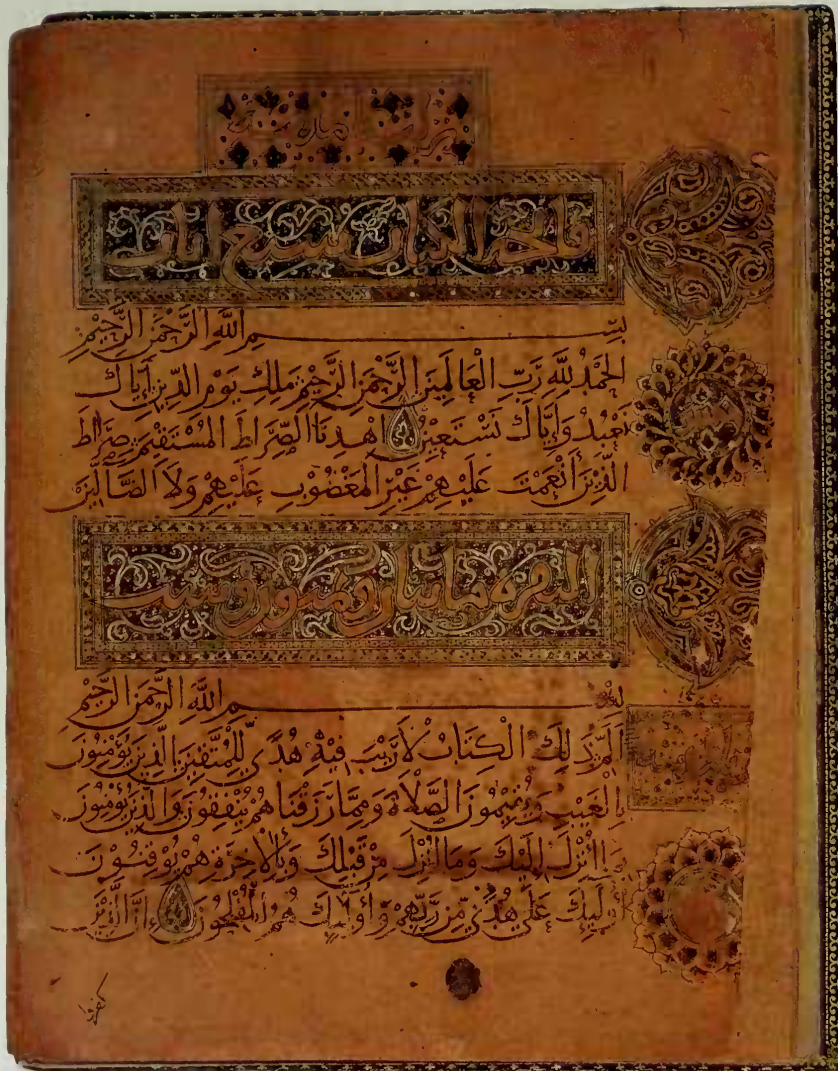 فاتحة الكتاب سبع ايات
بسم الله الرَّحْمَنِ الرَّحِيمِ
الحَمْدُ لِلَّهِ رَبِّ الْعَالَمِينَ الرَّحْمَنِ الرَّحِيمِ مَلِكِ يَوْمِ الدِّينِ إِيَّاكَ
نَعْبُدُ وَإِيَّاكَ نَسْتَعِينُ اهْدِنَا الصِّرَاطَ المُسْتَقِيمَ صِرَاطَ
الَّذِينَ أَنْعَمْتَ عَلَيْهِمْ غَيْرِ المَغْضُوبِ عَلَيْهِمْ وَلَا الضَّالِّينَ
البقرة مائتان وثمنون وست
بسم اللَّهِ الرَّحْمَنِ الرَّحِيمِ
الم ذَلِكَ الْكِتَابُ لَا رَيْبَ فِيهِ هُدًى لِلْمُتَّقِينَ الَّذِينَ يُؤْمِنُونَ
بِالْغَيْبِ وَيُقِيمُونَ الصَّلَاةَ وَمِمَّا رَزَقْنَاهُمْ يُنْفِقُونَ وَالَّذِينَ يُؤْمِنُونَ
بِمَا انْزِلَ إِلَيْكَ وَمَا انْزِلَ مِنْ قَبْلِكَ وَبِالْآخِرَةِ هُمْ يُوقِنُونَ
أُولَئِكَ عَلَى هُدًى مِنْ رَبِّهِمْ وَأُولَئِكَ هُمُ الْمُفْلِحُونَ إِنَّ الَّذِينَ
كفروا